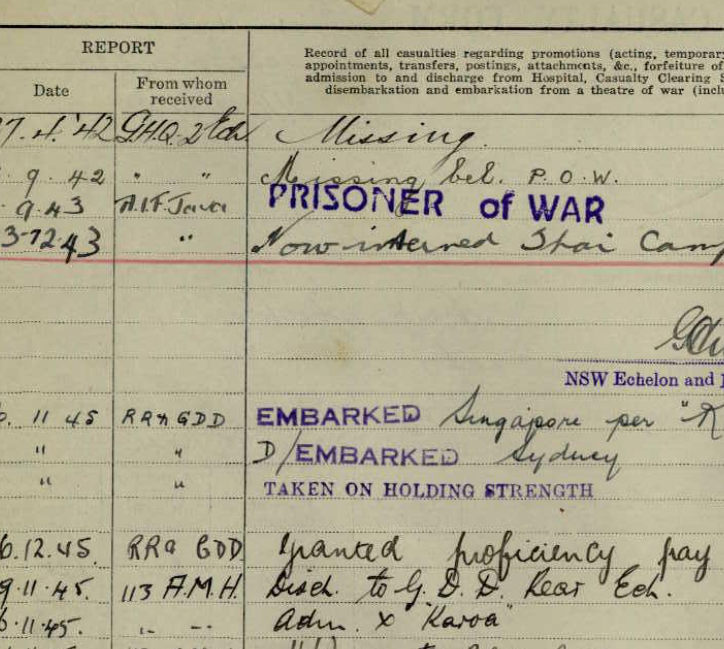 REPORT
Date
From whom received
Record of all casualties regarding promotions (acting, temporary
appointments, transfers, postings, attachments, &c., forfeiture of
admission to and discharge from Hospital, Casualty Clearing S
disembarkation and embarkation from a theatre of war (inclu
7.4.'42 G.H.Q. 2 Ech Missing.
9.42 " " Missing bel. P.O.W.
9.43 A.I.F. Java PRISONER of WAR
43 " Now interned Camp
NSW Echelon and
11 45 GDD EMBARKED Singapore per "
" " D/EMBARKED Sydney
" " TAKEN ON HOLDING STRENGTH
6.12.45. GDD Granted proficiency pay
9.11.45. 113 A.M.H. Disch. to G.D.D. Rear Ech.
6.11.45. " " Adm. X "Karoa"